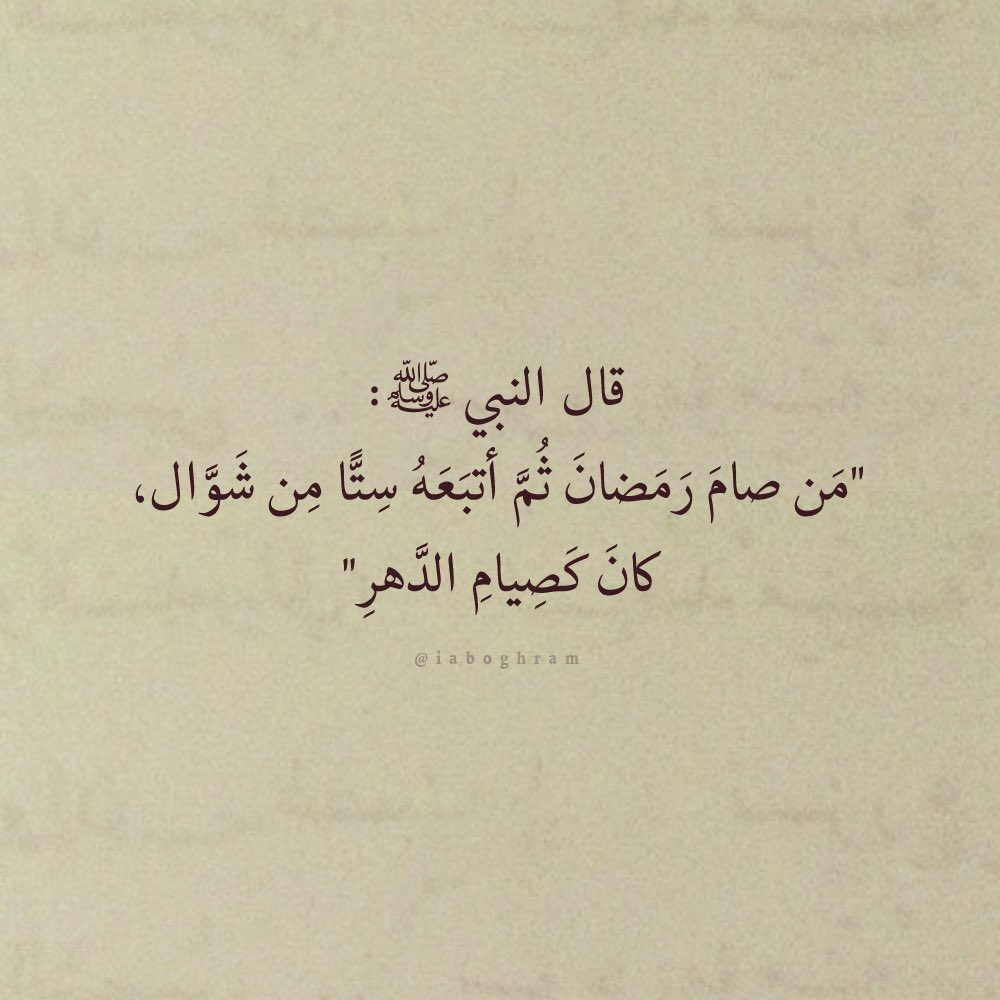 قال النبي ﷺ:
"مَن صامَ رَمَضانَ ثُمَّ أتبَعَهُ سِتًّا مِن شَوَّال،
كانَ كَصِيامِ الدَّهرِ"
@iaboghram